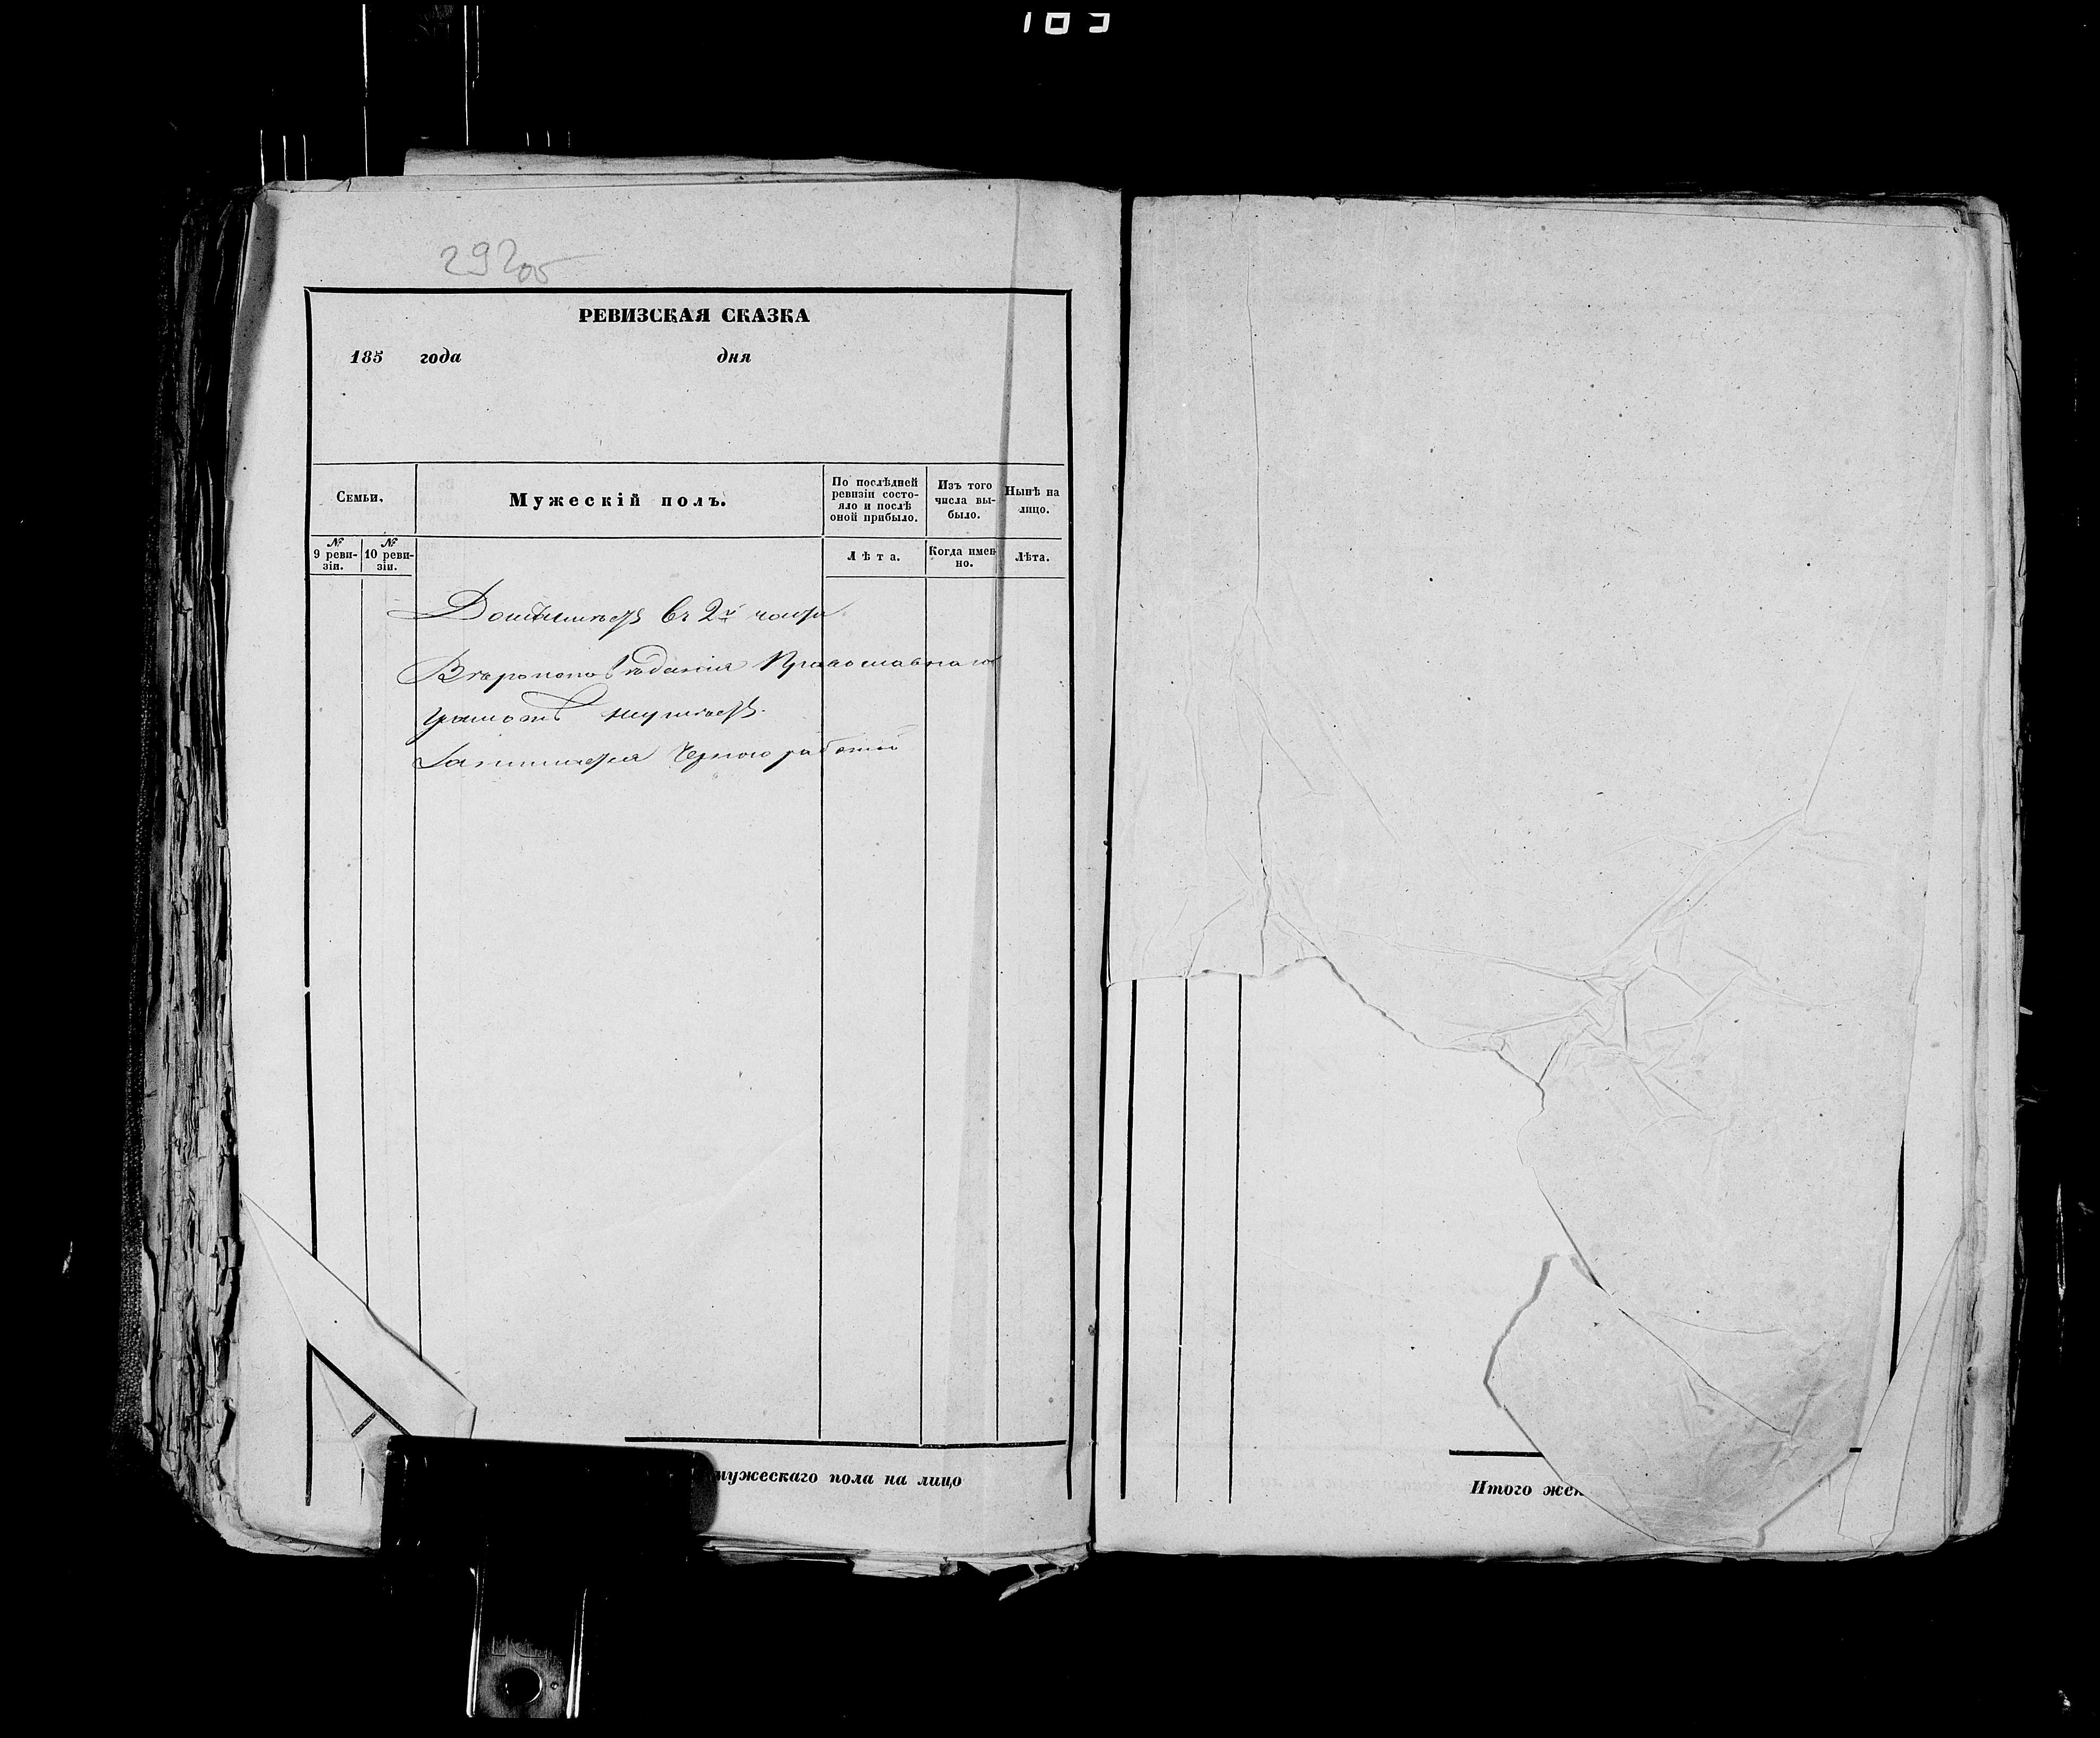 292об
РЕВИЗСКАЯ СКАЗКА
185 года дня
Семьи.
Мужескій полъ.
По послѣдней
ревизіи состо-
яло и послѣ
оной прибыло.
Изъ того
числа вы-
было.
Нынѣ на
лицо.
№
9 реви-
зіи.
№
10 реви-
зіи.
Лѣта.
Когда имен
но.
Лѣта.
въ 2й части
Вѣроисповѣданія Православнаго
грамотѣ неумѣетъ.
Занимается Черною работой
мужескаго пола на лицо
Итого жен